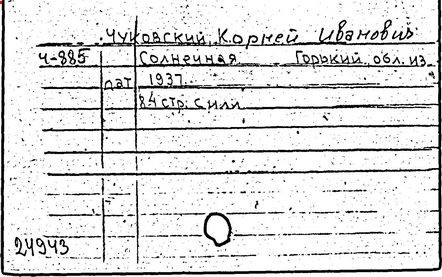 Чуковский, Корней Иванович
Ч-885 Солнечная Горький, обл. из.
лат 1937
84 стр. с илл
24943